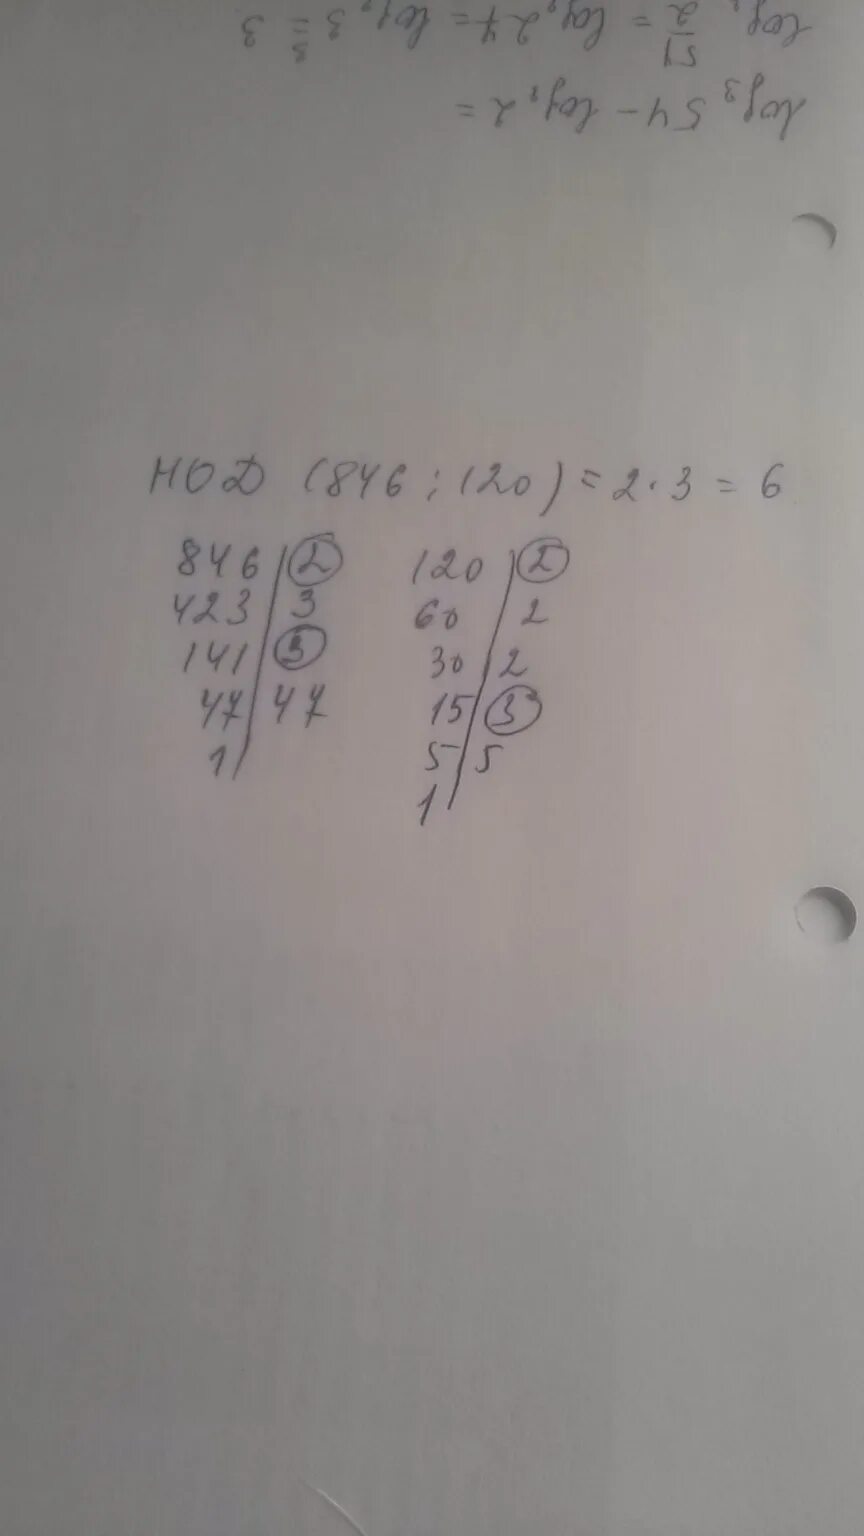 log₃ 54 - log₃ 2 =
log₃ 54/2 = log₃ 27 = log₃ 3³ = 3
НОД (846 ; 120) = 2 · 3 = 6
846 | 2 120 | 2
423 | 3 60 | 2
141 | 3 30 | 2
47 | 47 15 | 3
1 | 5 | 5
1 |